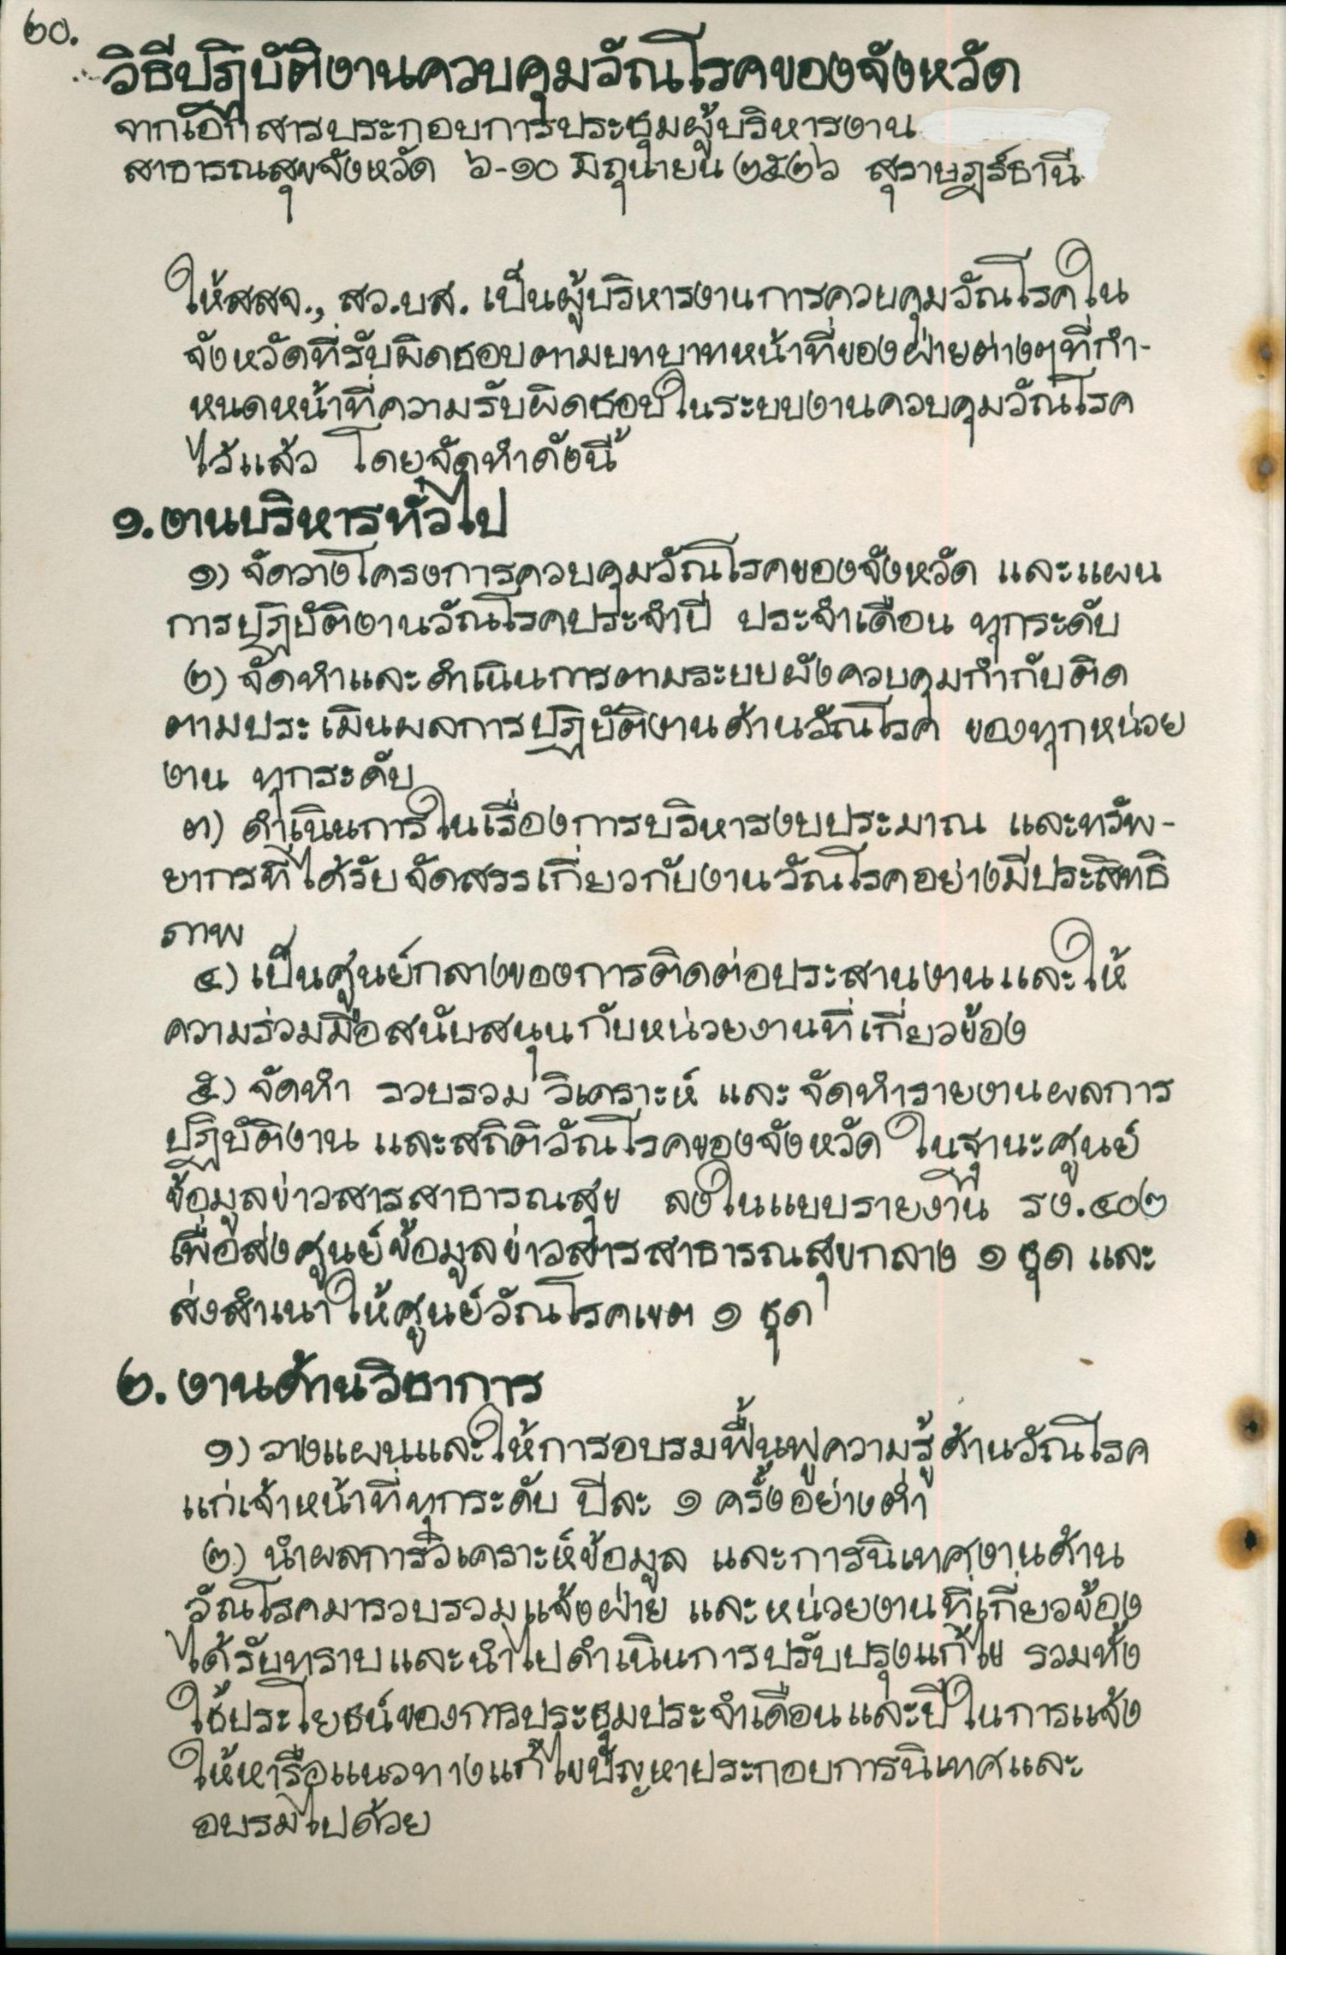 ๒๐.
วิธีปฏิบัติงานควบคุมวัณโรคของจังหวัด
จากเอกสารประกอบการประชุมผู้บริหารงาน
สาธารณสุขจังหวัด ๖-๑๐ มิถุนายน ๒๕๒๖ สุราษฎร์ธานี
ให้สสจ., สว.บส. เป็นผู้บริหารงานการควบคุมวัณโรคใน
จังหวัดที่รับผิดชอบตามบทบาทหน้าที่ของฝ่ายต่างๆที่กำ-
หนดหน้าที่ความรับผิดชอบในระบบงานควบคุมวัณโรค
ไว้แล้ว โดยจัดทำดังนี้
๑. งานบริหารทั่วไป
๑) จัดวางโครงการควบคุมวัณโรคของจังหวัด และแผน
การปฏิบัติงานวัณโรคประจำปี ประจำเดือน ทุกระดับ
๒) จัดทำและดำเนินการตามระบบผังควบคุมกำกับติด
ตามประเมินผลการปฏิบัติงานด้านวัณโรค ของทุกหน่วย
งาน ทุกระดับ
๓) ดำเนินการในเรื่องการบริหารงบประมาณ และทรัพ-
ยากรที่ได้รับจัดสรรเกี่ยวกับงานวัณโรคอย่างมีประสิทธิ
ภาพ
๔) เป็นศูนย์กลางของการติดต่อประสานงานและให้
ความร่วมมือสนับสนุนกับหน่วยงานที่เกี่ยวข้อง
๕) จัดทำ รวบรวม วิเคราะห์ และจัดทำรายงานผลการ
ปฏิบัติงาน และสถิติวัณโรคของจังหวัด ในฐานะศูนย์
ข้อมูลข่าวสารสาธารณสุข ลงในแบบรายงานี้ รง.๔๐๒
เพื่อส่งศูนย์ข้อมูลข่าวสารสาธารณสุขกลาง ๑ ชุด และ
ส่งสำเนาให้ศูนย์วัณโรคเขต ๑ ชุด
๒. งานด้านวิชาการ
๑) วางแผนและให้การอบรมฟื้นฟูความรู้ด้านวัณโรค
แก่เจ้าหน้าที่ทุกระดับ ปีละ ๑ ครั้งอย่างต่ำ
๒) นำผลการวิเคราะห์ข้อมูล และการนิเทศงานด้าน
วัณโรคมารวบรวมแจ้งฝ่าย และหน่วยงานที่เกี่ยวข้อง
ได้รับทราบและนำไปดำเนินการปรับปรุงแก้ไข รวมทั้ง
ใช้ประโยชน์ของการประชุมประจำเดือนและปีในการแจ้ง
ให้หารือแนวทางแก้ไขปัญหาประกอบการนิเทศและ
อบรมไปด้วย